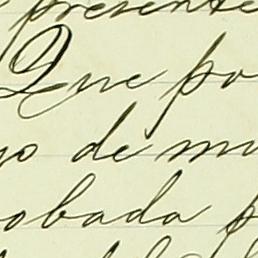 presente
Que po
yo de mu
obada p